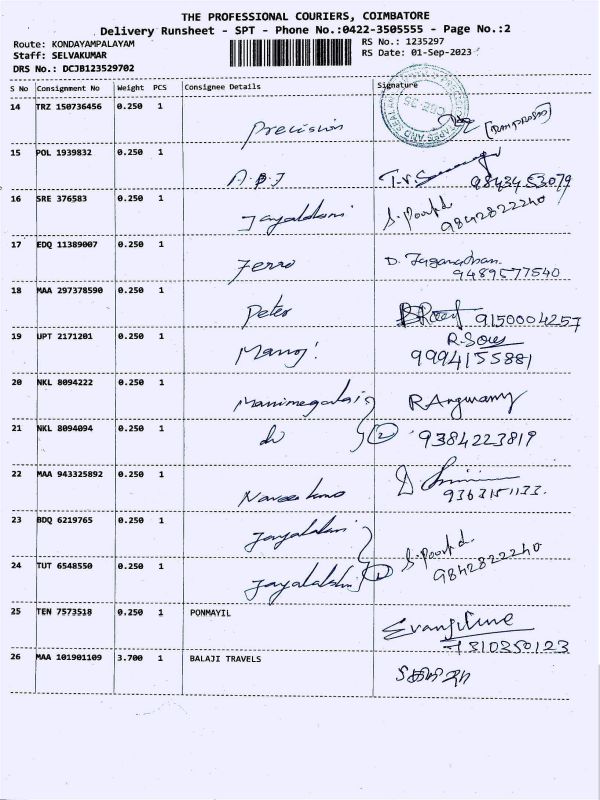 THE PROFESSIONAL COURIERS, COIMBATORE
Delivery Runsheet - SPT - Phone No.:0422-3505555 - Page No.:2
Route: KONDAYAMPALAYAM RS No.: 1235297
Staff: SELVAKUMAR RS Date: 01-Sep-2023
DRS No.: DCJB123529702
S No Consignment No Weight PCS Consignee Details Signature
14 TRZ 150736456 0.250 1
Precision
15 POL 1939832 0.250 1
A.B.J 9843453079
16 SRE 376583 0.250 1
Jayalakshmi 9842822240
17 EDQ 11389007 0.250 1
Ferro D. Jaganathan
9489577540
18 MAA 297378590 0.250 1
Peter 9150004257
19 UPT 2171201 0.250 1
Manoj 9994155881
20 NKL 8094222 0.250 1
Manimegalai
21 NKL 8094094 0.250 1
do 2 9384223819
22 MAA 943325892 0.250 1
9363151133.
23 BDQ 6219765 0.250 1
Jayalakshmi
24 TUT 6548550 0.250 1
Jayalakshmi 9842822240
25 TEN 7573518 0.250 1 PONMAYIL
Evangiline
7310350123
26 MAA 101901109 3.700 1 BALAJI TRAVELS